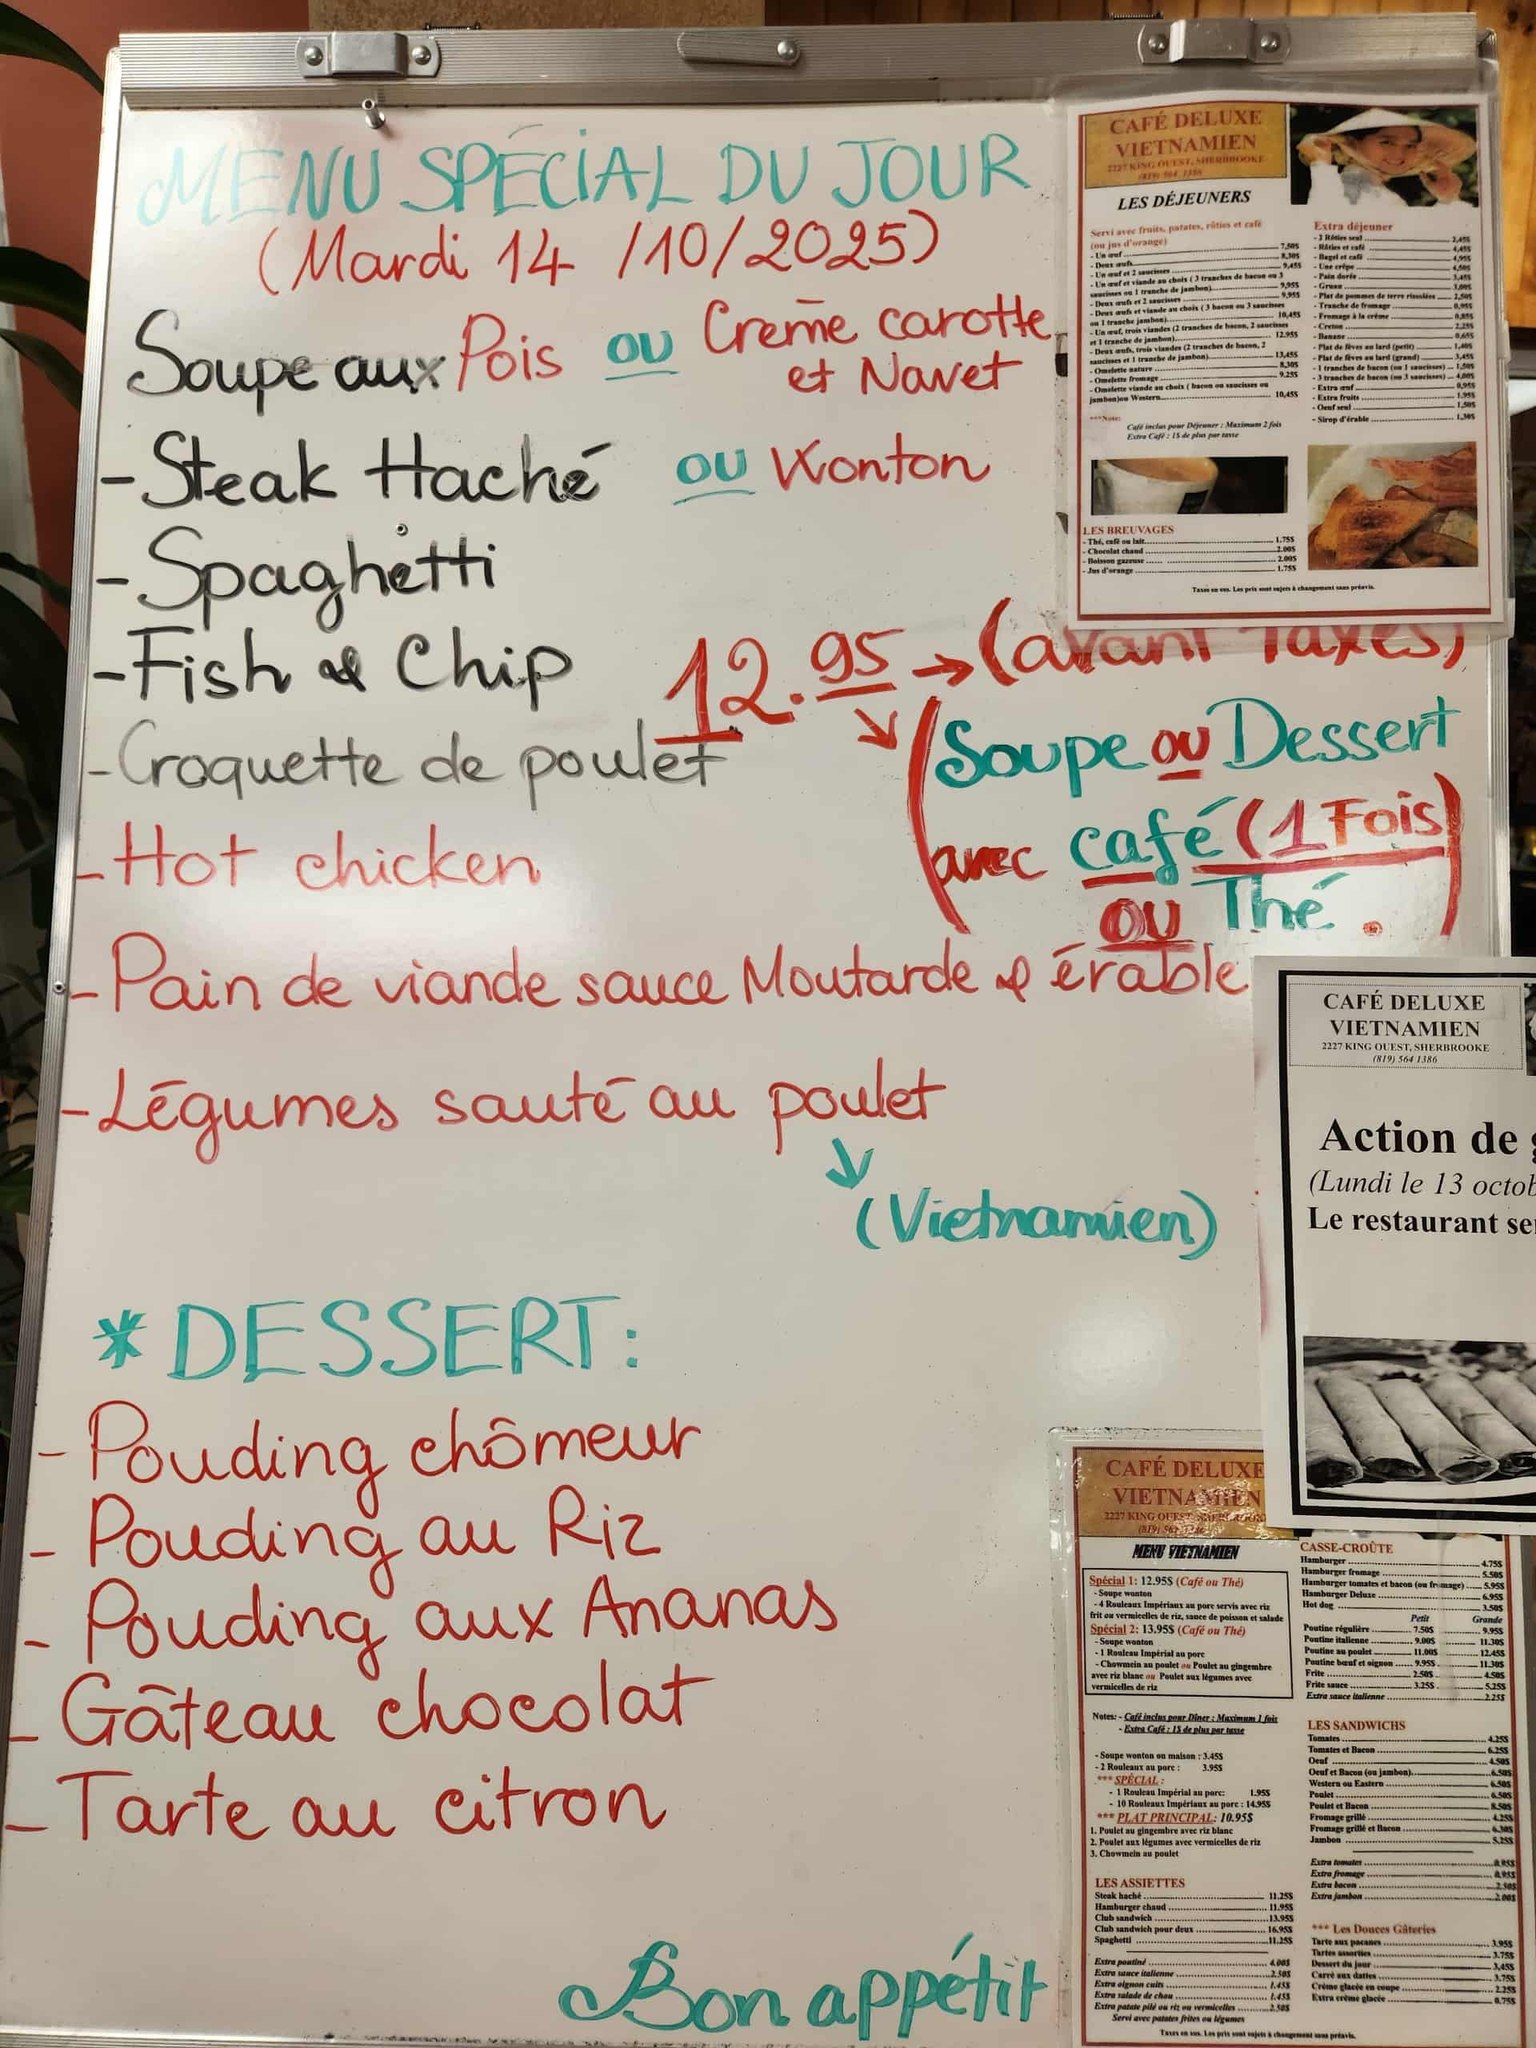 MENU SPÉCIAL DU JOUR
(Mardi 14 /10/2025)
Soupe aux Pois ou Crème carotte
et Navet
- Steak Haché ou Wonton
- Spaghetti
- Fish & Chip
12.95 → (avant Taxes)
- Croquette de poulet
(Soupe ou Dessert
avec café (1 Fois)
ou Thé.)
- Hot chicken
- Pain de viande sauce Moutarde & érable
- Légumes sauté au poulet
(Vietnamien)
* DESSERT:
- Pouding chômeur
- Pouding au Riz
- Pouding aux Ananas
- Gâteau chocolat
- Tarte au citron
Bon appétit
CAFÉ DELUXE
VIETNAMIEN
2227 KING OUEST, SHERBROOKE
(819) 564 1386
LES DÉJEUNERS
Servi avec fruits, patates, rôties et café
(ou jus d'orange)
- Un œuf 7,50$
- Deux œufs 8,30$
- Un œuf et 2 saucisses 9,45$
- Un œuf et viande au choix ( 3 tranches de bacon ou 3
saucisses ou 1 tranche de jambon) 9,95$
- Deux œufs et 2 saucisses 9,95$
- Deux œufs et viande au choix ( 3 bacon ou 3 saucisses
ou 1 tranche jambon) 10,45$
- Un œuf, trois viandes (2 tranches de bacon, 2 saucisses
et 1 tranche de jambon) 12.95$
- Deux œufs, trois viandes (2 tranches de bacon, 2
saucisses et 1 tranche de jambon) 13,45$
- Omelette nature 8,30$
- Omelette fromage 9.25$
- Omelette viande au choix ( bacon ou saucisses ou
jambon)ou Western 10,45$
***Note:
Café inclus pour Déjeuner : Maximum 2 fois
Extra Café : 1$ de plus par tasse
LES BREUVAGES
- Thé, café ou lait 1.75$
- Chocolat chaud 2.00$
- Boisson gazeuse 2.00$
- Jus d'orange 1.75$
Extra déjeuner
- 2 Rôties seul 2,45$
- Rôties et café 4,45$
- Bagel et café 4,95$
- Une crêpe 4,50$
- Pain dorée 3,45$
- Gruau 3,00$
- Plat de pommes de terre rissolées 2,50$
- Tranche de fromage 0,95$
- Fromage à la crème 0,85$
- Creton 2,25$
- Banane 0,65$
- Plat de fèves au lard (petit) 1,40$
- Plat de fèves au lard (grand) 3,45$
- 1 tranches de bacon (ou 1 saucisses) 1,50$
- 3 tranches de bacon (ou 3 saucisses) 4,00$
- Extra œuf 0,95$
- Extra fruits 1.95$
- Oeuf seul 1,50$
- Sirop d'érable 1,30$
Taxes en sus. Les prix sont sujets à changement sans préavis.
CAFÉ DELUXE
VIETNAMIEN
2227 KING OUEST, SHERBROOKE
(819) 564 1386
Action de
(Lundi le 13 octob
Le restaurant se
CAFÉ DELUXE
VIETNAMIEN
2227 KING OUEST,
MENU VIETNAMIEN
Spécial 1: 12.95$ (Café ou Thé)
- Soupe wonton
- 4 Rouleaux Impériaux au porc servis avec riz
frit ou vermicelles de riz, sauce de poisson et salade
Spécial 2: 13.95$ (Café ou Thé)
- Soupe wonton
- 1 Rouleau Impérial au porc
- Chowmein au poulet ou Poulet au gingembre
avec riz blanc ou Poulet aux légumes avec
vermicelles de riz
Notes: - Café inclus pour Dîner : Maximum 1 fois
- Extra Café : 1$ de plus par tasse
- Soupe wonton ou maison : 3.45$
- 2 Rouleaux au porc : 3.95$
*** SPÉCIAL :
- 1 Rouleau Impérial au porc: 1.95$
- 10 Rouleaux Impériaux au porc : 14.95$
*** PLAT PRINCIPAL: 10.95$
1. Poulet au gingembre avec riz blanc
2. Poulet aux légumes avec vermicelles de riz
3. Chowmein au poulet
LES ASSIETTES
Steak haché 11.25$
Hamburger chaud 11.95$
Club sandwich 13.95$
Club sandwich pour deux 16.95$
Spaghetti 11.25$
Extra poutiné 4.00$
Extra sauce italienne 2.50$
Extra oignon cuits 1.45$
Extra salade de chou 1.45$
Extra patate pilé ou riz ou vermicelles 2.50$
Servi avec patates frites ou légumes
CASSE-CROÛTE
Hamburger 4.75$
Hamburger fromage 5.50$
Hamburger tomates et bacon (ou fromage) 5.95$
Hamburger Deluxe 6.95$
Hot dog 3.50$
Petit Grande
Poutine régulière 7.50$ 9.95$
Poutine italienne 9.00$ 11.30$
Poutine au poulet 11.00$ 12.45$
Poutine bœuf et oignon 9.95$ 11.30$
Frite 2.50$ 4.50$
Frite sauce 3.25$ 5.25$
Extra sauce italienne 2.25$
LES SANDWICHS
Tomates 4.25$
Tomates et Bacon 6.25$
Oeuf 4.50$
Oeuf et Bacon (ou jambon) 6.50$
Western ou Eastern 6.50$
Poulet 6.50$
Poulet et Bacon 8.50$
Fromage grillé 4.25$
Fromage grillé et Bacon 6.30$
Jambon 5.25$
Extra tomates 0.95$
Extra fromage 0.95$
Extra bacon 2.50$
Extra jambon 2.00$
*** Les Douces Gâteries
Tarte aux pacanes 3.95$
Tartes assorties 3.75$
Dessert du jour 3,45$
Carré aux dattes 3.75$
Crème glacée en coupe 2.25$
Extra crème glacée 0.75$
Taxes en sus. Les prix sont sujets à changement sans préavis.